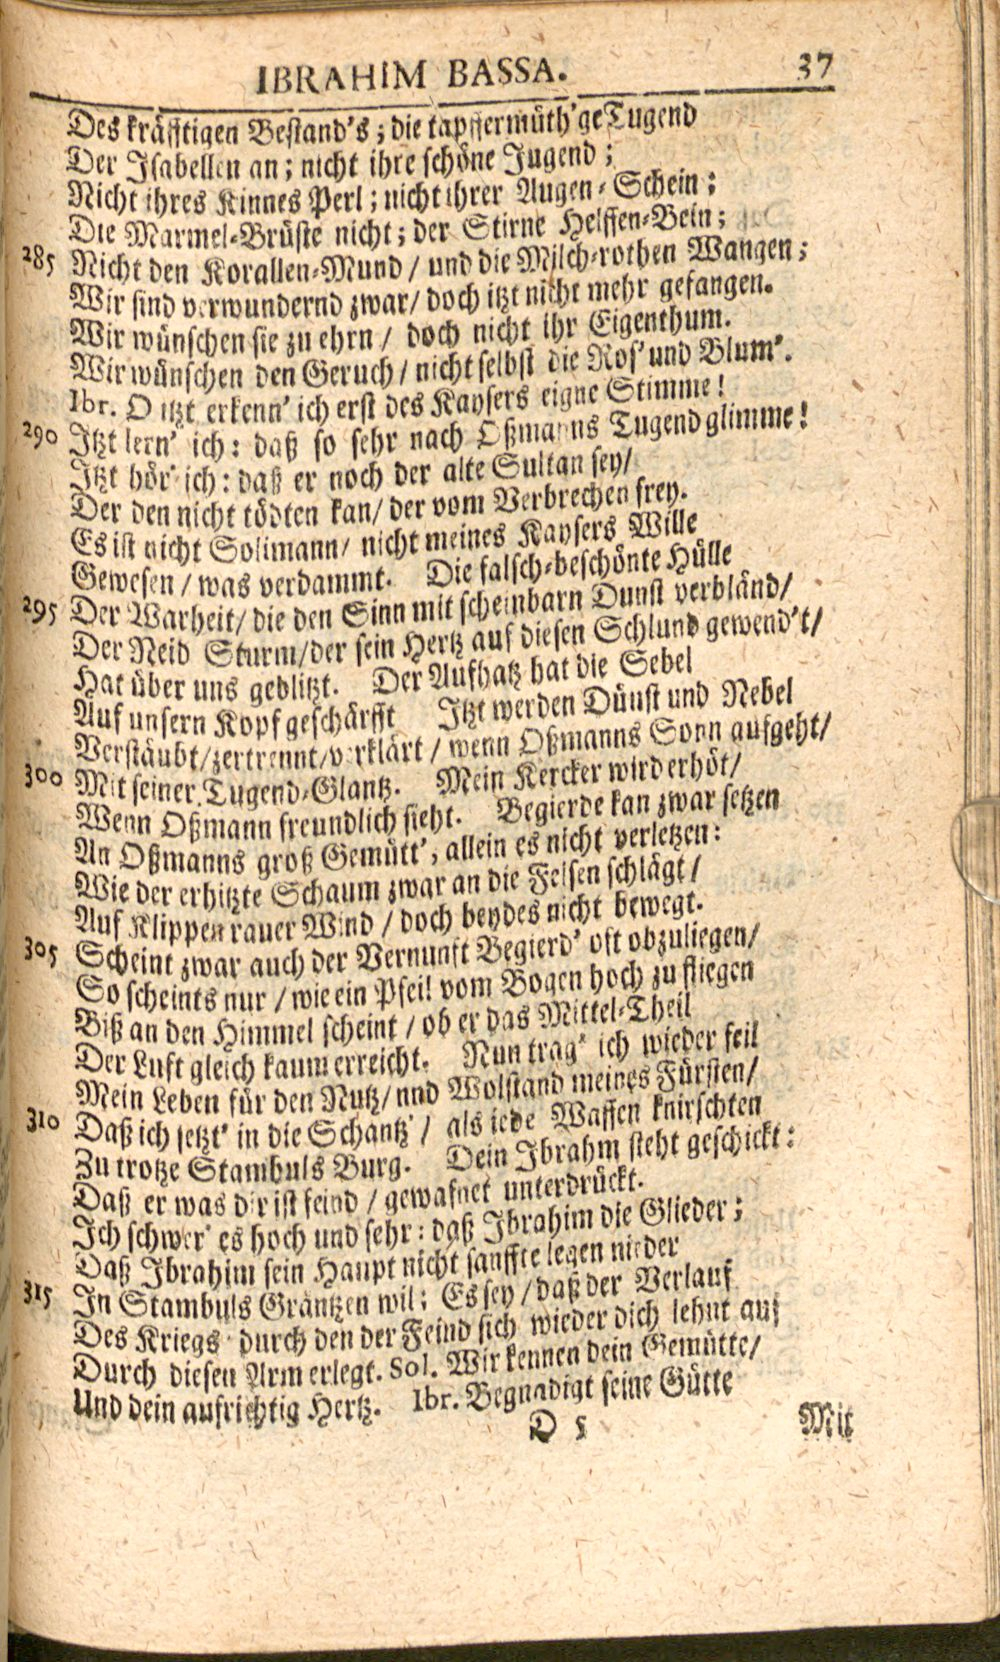 IBRAHIM BASSA. 37
Des kräfftigen Bestand's; die tapffermüth'ge Tugend
Der Isabellen an; nicht ihre schöne Jugend;
Nicht ihres Kinnes Perl; nicht ihrer Augen-Schein;
Die Marmel-Brüste nicht; der Stirne Helffen-Bein;
285 Nicht den Korallen-Mund / und die Milch-rothen Wangen;
Wir sind verwundernd zwar/ doch itzt nicht mehr gefangen.
Wir wünschen sie zu ehrn / doch nicht ihr Eigenthum.
Wir wünschen den Geruch / nicht selbst die Ros' und Blum'.
Ibr. O itzt erkenn' ich erst des Kaysers eigne Stimme!
290 Itzt lern' ich: daß so sehr nach Oßmanns Tugend glimme!
Itzt hör' ich: daß er noch der alte Sultan sey/
Der den nicht tödten kan/ der vom Verbrechen frey.
Es ist nicht Solimann/ nicht meines Kaysers Wille
Gewesen / was verdammt. Die falsch-beschönte Hülle
295 Der Warheit/ die den Sinn mit scheinbarn Dunst verbländ/
Der Neid Sturm/der sein Hertz auf diesen Schlund gewend't/
Hat über uns geblitzt. Der Aufhatz hat die Sebel
Auf unsern Kopf geschärfft Itzt werden Dünst und Nebel
Verstäubt/zertrennt/verklärt / wenn Oßmanns Sonn aufgeht/
300 Mit seiner Tugend-Glantz. Mein Kercker wird erhöt/
Wenn Oßmann freundlich sieht. Begierde kan zwar setzen
An Oßmanns groß Gemütt', allein es nicht verletzen:
Wie der erhitzte Schaum zwar an die Felsen schlägt/
Auf Klippen rauer Wind / doch beydes nicht bewegt.
305 Scheint zwar auch der Vernunft Begierd' oft obzuliegen/
So scheints nur / wie ein Pfeil vom Bogen hoch zu fliegen
Biß an den Himmel scheint / ob er das Mittel-Theil
Der Luft gleich kaum erreicht. Nun trag' ich wieder feil
Mein Leben für den Nutz/ nnd Wolstand meines Fürsten/
310 Daß ich setzt' in die Schantz' / als iede Waffen knirschten
Zu trotze Stambuls Burg. Dein Ibrahm steht geschickt:
Daß er was dir ist feind / gewafnet unterdrückt.
Ich schwer' es hoch und sehr: daß Ibrahim die Glieder;
Daß Ibrahim sein Haupt nicht sanffte legen nieder
315 In Stambuls Gräntzen wil; Es sey / daß der Verlauf
Des Kriegs durch den der Feind sich wieder dich lehnt auf
Durch diesen Arm erlegt. Sol. Wir kennen dein Gemütte/
Und dein aufrichtig Hertz. Ibr. Begnadigt seine Gütte
D 5 Mit